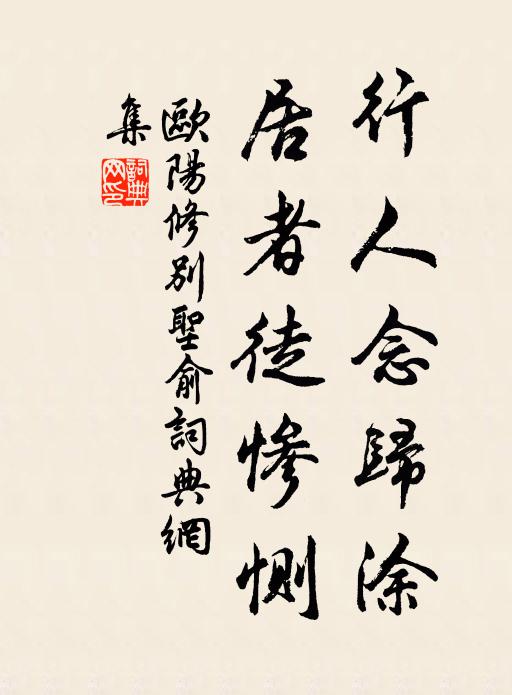 行人念歸涂
居者徒慘惻
歐陽修別聖俞詞典網
集
詞典网印